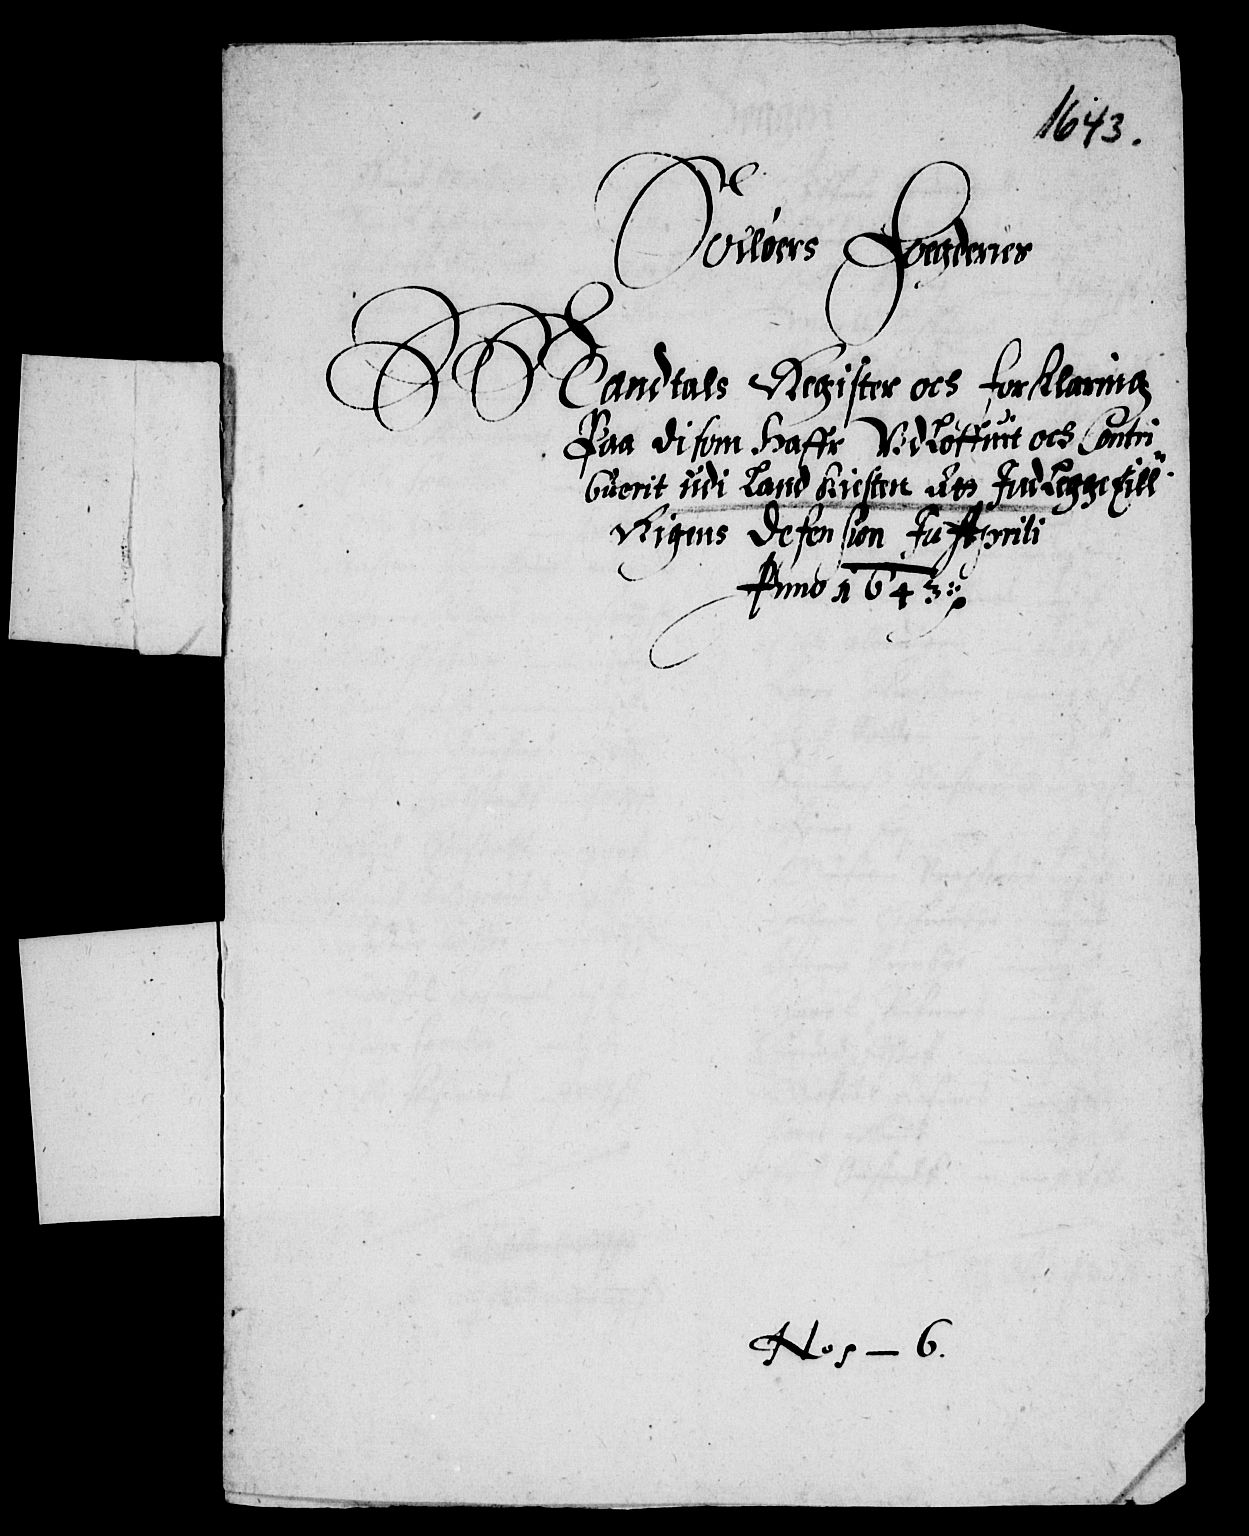 1643.
Souløers Foegderies
Mandtals Register och forklaring
Paa di som haffr Udloffuit och Contri
buerit udi Land Kisten at Indlegge till
Rigens Defension In Aprili
Anno 1643
No 6.